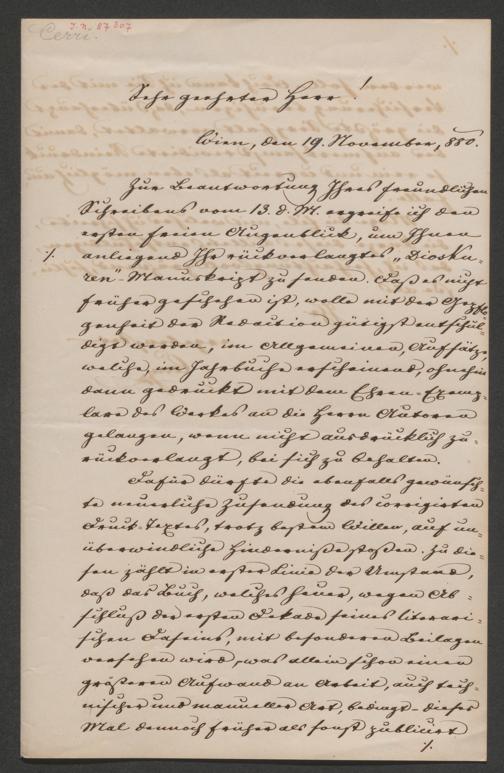 J. N. 87307
Cerri.
Sehr geehrter Herr!
Wien, den 19. November, 880.
Zur Beantwortung Ihres freundlichen
Schreibens vom 13. d. M. ergreife ich den
ersten freien Augenblick, um Ihnen
./. anliegend Ihr rückverlangtes „Diosku-
ren"-Manuskript zu senden. Daß es nicht
früher geschehen ist, wolle mit der Gepflo-
genheit der Redaction gütigst entschul-
digt werden, im Allgemeinen, Aufsätze,
welche, im Jahrbuche erscheinend, ohnehin
dann gedruckt mit dem Ehren-Exemp-
lare des Werkes an die Herrn Autoren
gelangen, wenn nicht ausdrücklich zu-
rückverlangt, bei sich zu behalten.
Dafür dürfte die ebenfalls gewünsch-
te neuerliche Zusendung des corrigirten
Druck-Textes, trotz bestem Willen, auf un-
überwindliche Hinderniße stoßen. Zu die-
sen zählt in erster Linie der Umstand,
daß das Buch, welches heuer, wegen Ab-
schluß der ersten Dekade seines literari-
schen Daseins, mit besonderen Beilagen
versehen wird, – was allein schon einen
größeren Aufwand an Arbeit, auch tech-
nischer und manueller Art, bedingt – dieses
Mal dennoch früher als sonst publicirt
./.